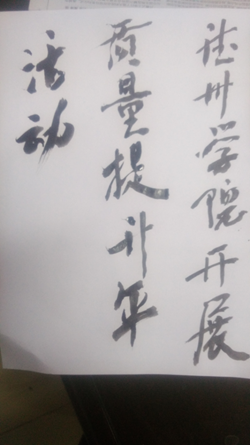 德州学院开展
质量提升年
活动